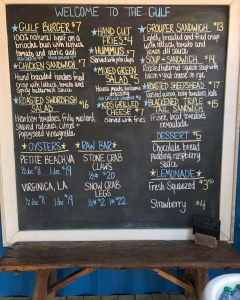 WELCOME TO THE GULF
★GULF BURGER $7
100% natural beef on a
brioche bun with lettuce
tomato and garlic aioli
★CHICKEN SANDWICH $7
Hand breaded tenders fried
crisp with lettuce, tomato and
★ROASTED SWORDFISH
SALAD $16
Heirloom tomatoes, frilly mustard,
shaved radishes, citrus
vinaigrette
★HAND CUT
FRIES $4
★HUMMUS $7
Served with pita chips
★MIXED GREEN
SALAD $5
House made
dressing
★KIDS GRILLED
CHEESE $5
Served with fries
★GROUPER SANDWICH $13
Lightly breaded and fried crisp
with lettuce, tomato and
★SOUP + SANDWICH $14
★ROASTED SHEEPSHEAD $17
★BLACKENED TRIPLE
TAIL SANDWICH $15
Frisee, local tomatoes
remoulade
DESSERT $5
Chocolate bread
pudding, raspberry
sauce
★LEMONADE★
Fresh Squeezed $3.50
Strawberry $4
★OYSTERS★
PETITE BEACH, VA
½ doz $11 1 doz $19
VIRGINICA, LA
½ doz $11 1 doz $19
RAW BAR★
STONE CRAB
CLAWS
½ # $20
SNOW CRAB
LEGS
½ # $12 1# $22